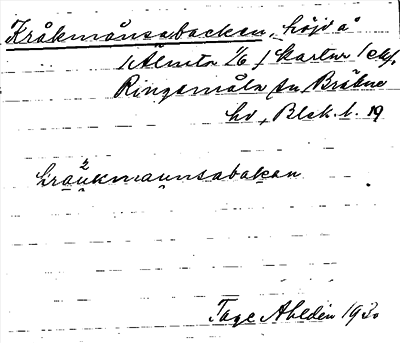 Kråkmånsabacken, höjd å
Älmta 1/6 / kartur / ek/.
Ringamåla sn Bräkne
hd, Blek. l. 19
kra2ukmaunsabakan
Tage Ahldén 1930